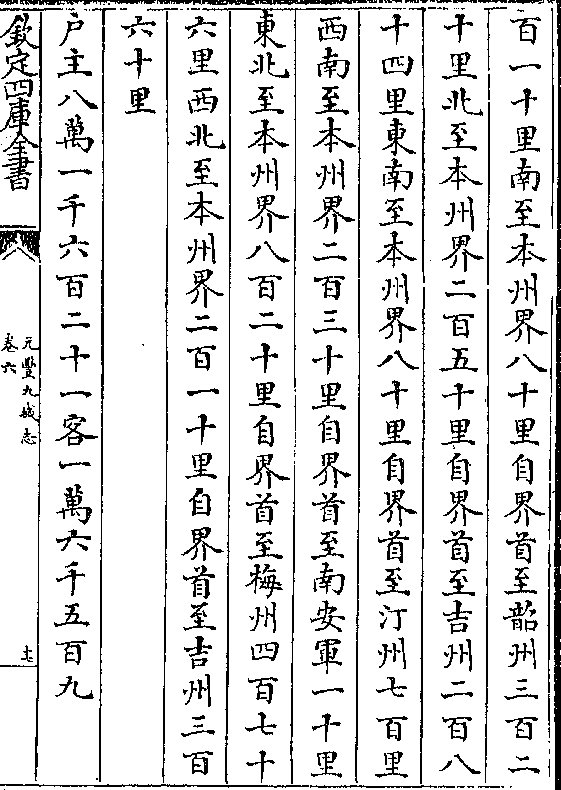 百一十里南至本州界八十里自界首至韶州三百二
十里北至本州界二百五十里自界首至吉州二百八
十四里東南至本州界八十里自界首至汀州七百里
西南至本州界二百三十里自界首至南安軍一十里
東北至本州界八百二十里自界首至梅州四百七十
六里西北至本州界二百一十里自界首至吉州三百
六十里
户主八萬一千六百二十一客一萬六千五百九
欽定四庫全書
元豐九域志
卷六